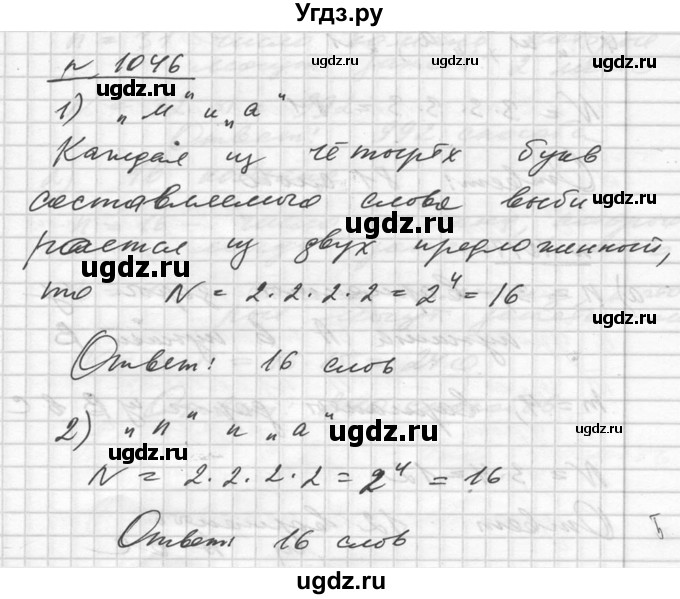 Угдз.ру
№ 1046
1) „м" и „а"
Каждая из четырёх букв
составляемого слова выби
рается из двух предложенный,
то N = 2·2·2·2 = 2⁴ = 16
Ответ: 16 слов
2) „п" и „а"
N = 2·2·2·2 = 2⁴ = 16
Ответ: 16 слов
ugdz.ru
ugdz.ru
ugdz.ru
ugdz.ru
ugdz.ru
ugdz.ru
ugdz.ru
ugdz.ru
ugdz.ru
ugdz.ru
ugdz.ru